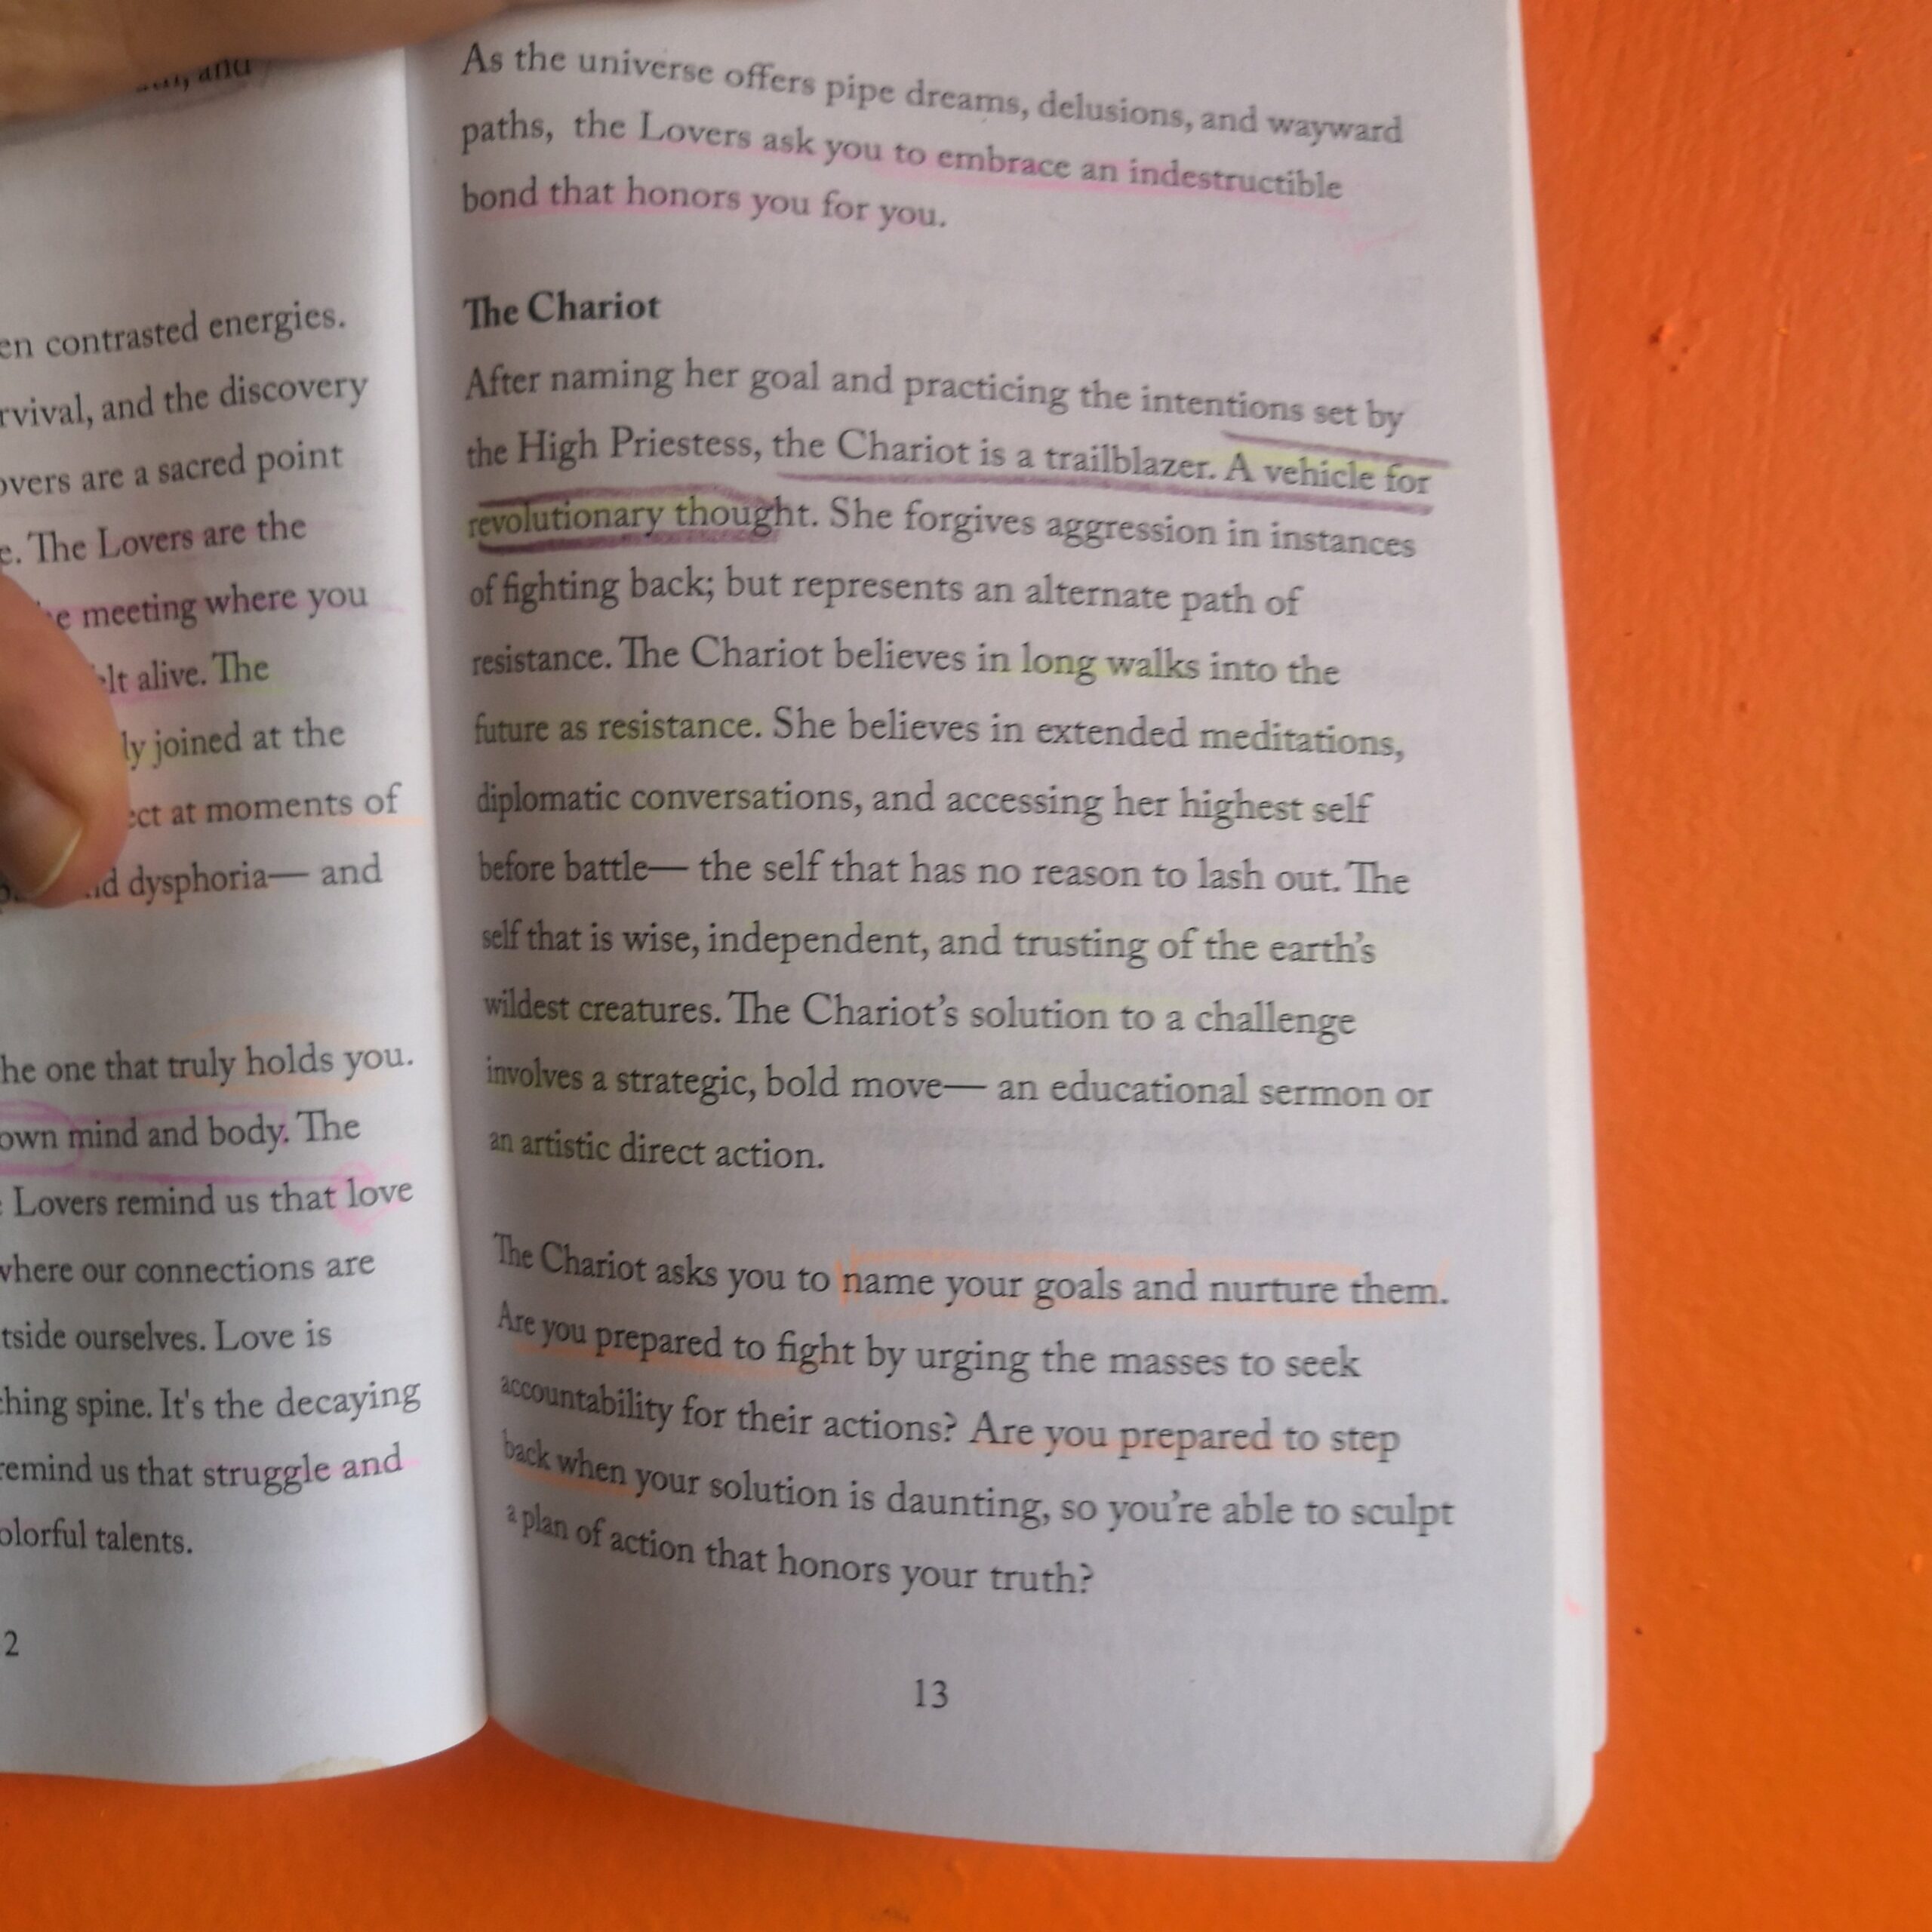 and
en contrasted energies.
rvival, and the discovery
overs are a sacred point
e. The Lovers are the
e meeting where you
elt alive. The
ly joined at the
ect at moments of
dysphoria— and
he one that truly holds you.
own mind and body. The
Lovers remind us that love
where our connections are
tside ourselves. Love is
ching spine. It's the decaying
remind us that struggle and
olorful talents.
2
As the universe offers pipe dreams, delusions, and wayward
paths, the Lovers ask you to embrace an indestructible
bond that honors you for you.
The Chariot
After naming her goal and practicing the intentions set by
the High Priestess, the Chariot is a trailblazer. A vehicle for
revolutionary thought. She forgives aggression in instances
of fighting back; but represents an alternate path of
resistance. The Chariot believes in long walks into the
future as resistance. She believes in extended meditations,
diplomatic conversations, and accessing her highest self
before battle— the self that has no reason to lash out. The
self that is wise, independent, and trusting of the earth’s
wildest creatures. The Chariot’s solution to a challenge
involves a strategic, bold move— an educational sermon or
an artistic direct action.
The Chariot asks you to name your goals and nurture them.
Are you prepared to fight by urging the masses to seek
accountability for their actions? Are you prepared to step
back when your solution is daunting, so you’re able to sculpt
a plan of action that honors your truth?
13